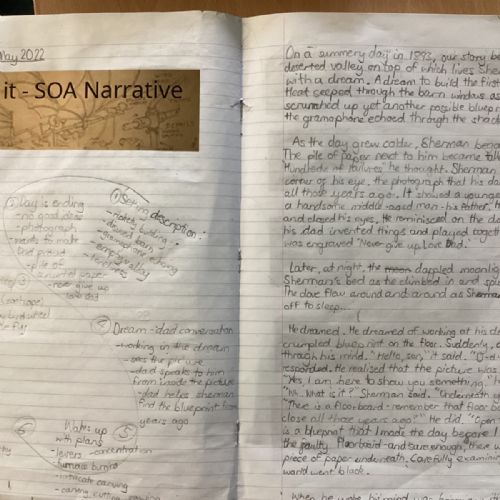 May 2022
it - SOA Narrative
① Setting description:
- rickety building
- disused barn
- gramophone echoing
- deep valley
② Day is ending
- no good ideas
- photograph
- wants to make
dad proud
- pile of
paper
- never give up
love dad
③
④ Dream - dad conversation
- working in the dream
- sees the picture
- dad speaks to him
from inside the picture
- dad helps sherman
find the blueprint from
years ago
⑤ Wakes up
with plans
- levers - concentration
- furnace burning
- intricate carving
- carving, cutting,
On a summery day in 1893, our story be
deserted valley on top of which lives She
with a dream. A dream to build the first
Heat seeped through the barn windows as
scrunched up yet another possible bluepr
the gramophone echoed through the shad
As the day grew colder, Sherman bega
The pile of paper next to him became
'Hundreds of failures' he thought. Sherman
corner of his eye, the photograph that his da
all those years ago. It showed a younger
a handsome middle aged man - his father. H
and closed his eyes. He reminisced on the da
his dad invented things and played togeth
was engraved 'Never give up Love Dad.'
Later, at night, the moon dappled moonlig
Sherman's bed as he climbed in and
The dove flew around and around as Sherma
off to sleep...
He dreamed. He dreamed of working at his d
crumpled blueprint on the floor. Suddenly, a
through his mind. "Hello, son," it said. "D-d
responded. He realised that the picture was
"Yes, I am here to show you something."
"Wh.. What is it?" Sherman said. "Underneath y
"There is a floorboard - remember that floor b
close all those years ago?" "He did. "Open
is a blueprint that I made the day before I
the faulty floorboard - and sure enough, there w
piece of paper underneath. Carefully examinin
world went black.
When he woke his mind was